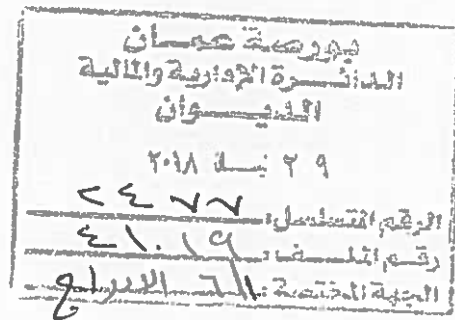 بورصة عمان
الدائرة الإدارية والمالية
الديوان
٢٩ نيسان ٢٠١٨
الرقم المتسلسل: ٢٤٧٧
رقم الملف: ٤١٠١٩
الجهة المختصة: الإدراج